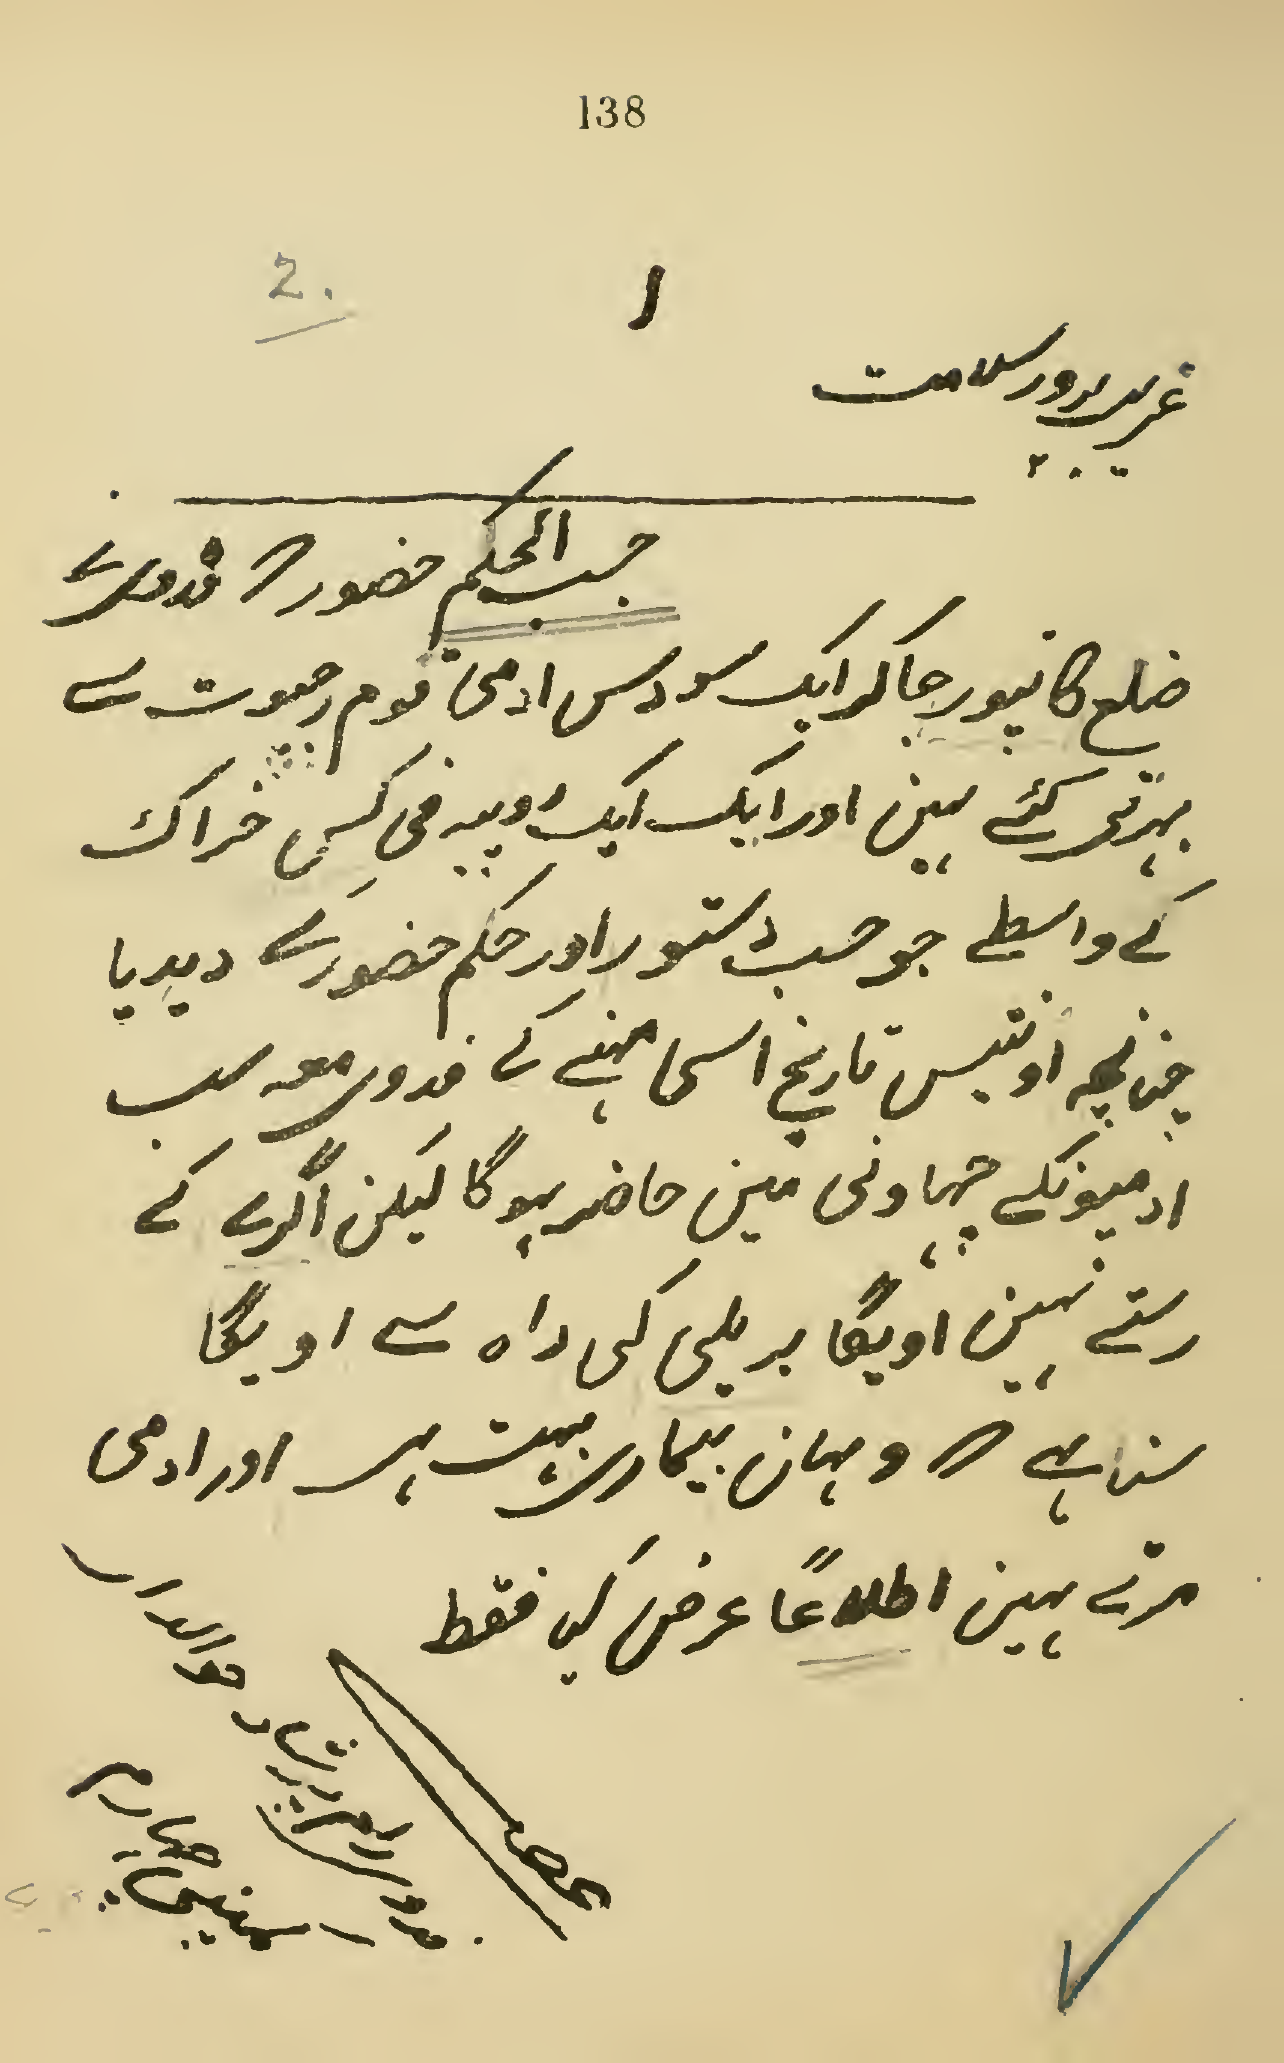 138
2.
۱
غریب پرور سلامت
حسب الحکم حضور کہ فدوی نے
ضلع کانپور جاکر ایک سو دس ادمی قوم رجپوت سے
بہرتی کئے ہین اور ایک ایک روپیہ فی کس خراک
کے واسطے جو حسب دستور اور حکم حضور کے دیدیا
چنانچہ اونتیس تاریخ اسی مہنے کے فدوی معہ سب
ادمیونکے چہاونی مین حاضر ہوگا لیکن اگرے کے
رستے نہین اویگا بریلی کی راہ سے اویگا
سنا ہے کہ وہان بیماری بہت ہے اور ادمی
مرتے ہین اطلاعاً عرض کیا فقط
عرضے
فدوی رام پرشاد حوالدار
کمپنی چہارم